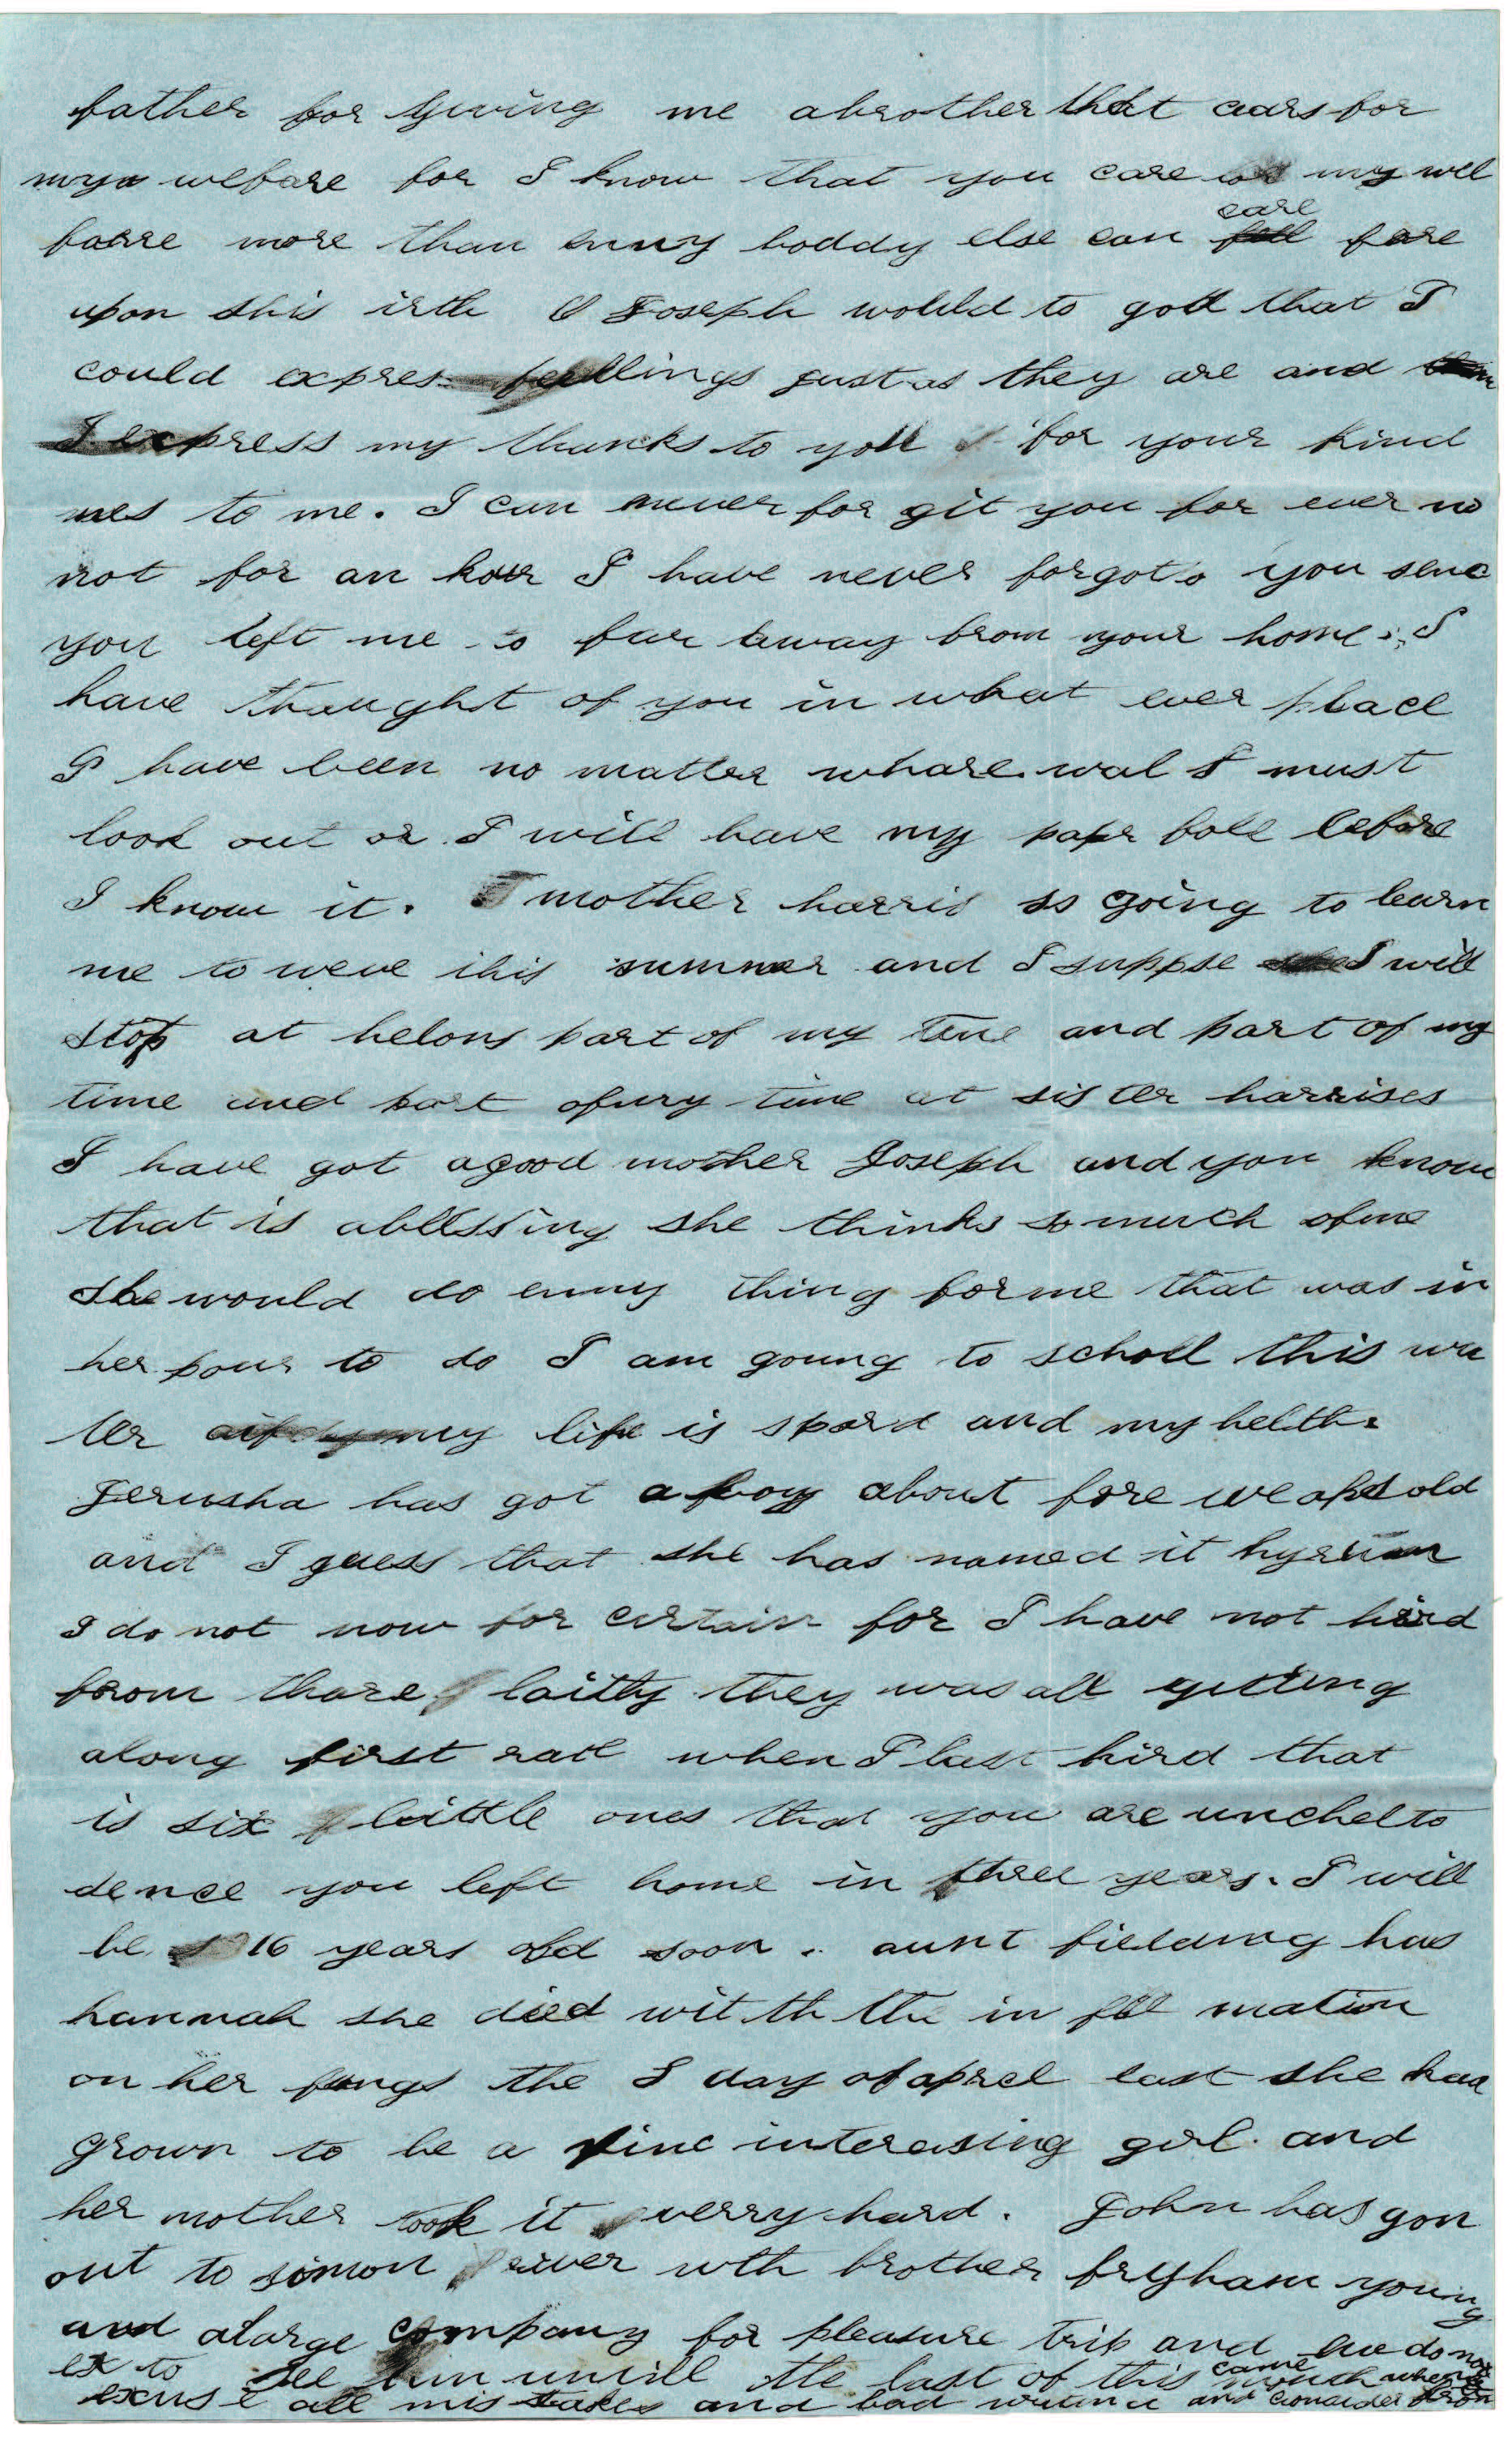 father for giving me abrother that cars for
my welfare for I know that you care my wel
faire more than enny boddy else can care fore
upon this irth O Joseph would to god that I
could expres feellings just as they are and
I express my thanks to you for your kind
nes to me. I can never for git you for ever no
not for an hour I have never forgot you senc
you left me so fur away from your home. I
have thought of you in what ever place
I have been no matter whare. wal I must
look out or I will have my papr foll before
I know it. mother harris is going to learn
me to weve this summer and I suppse I will
stop at helons part of my time and part of my
time and part ofmy time at sister harrises
I have got agood mother Joseph and you know
that is ablessing she thinks so much ofme
she would do enny thing forme that was in
her pour to do I am goung to scholl this win
ter if my life is spard and my helth.
Jerusha has got a boy about fore weaks old
and I guess that she has named it hyrum
I do not now for certain for I have not hird
from thare laitly they was all gitting
along first rate when I last hird that
is six litttle ones that you are unchel to
sence you left home in three years. I will
be 16 years old soon. aunt fielding has
hannah she died wit th the in fle mation
on her lungs the day of aprel last she had
grown to be a fine interesing girl. and
her mother took it verry hard. John has gon
out to simon river wth brother brygham young
and alarge company for pleasure trip and we do not
ex to see him untill the last of this month came when
excuse all mis stakes and bad writing and consider from